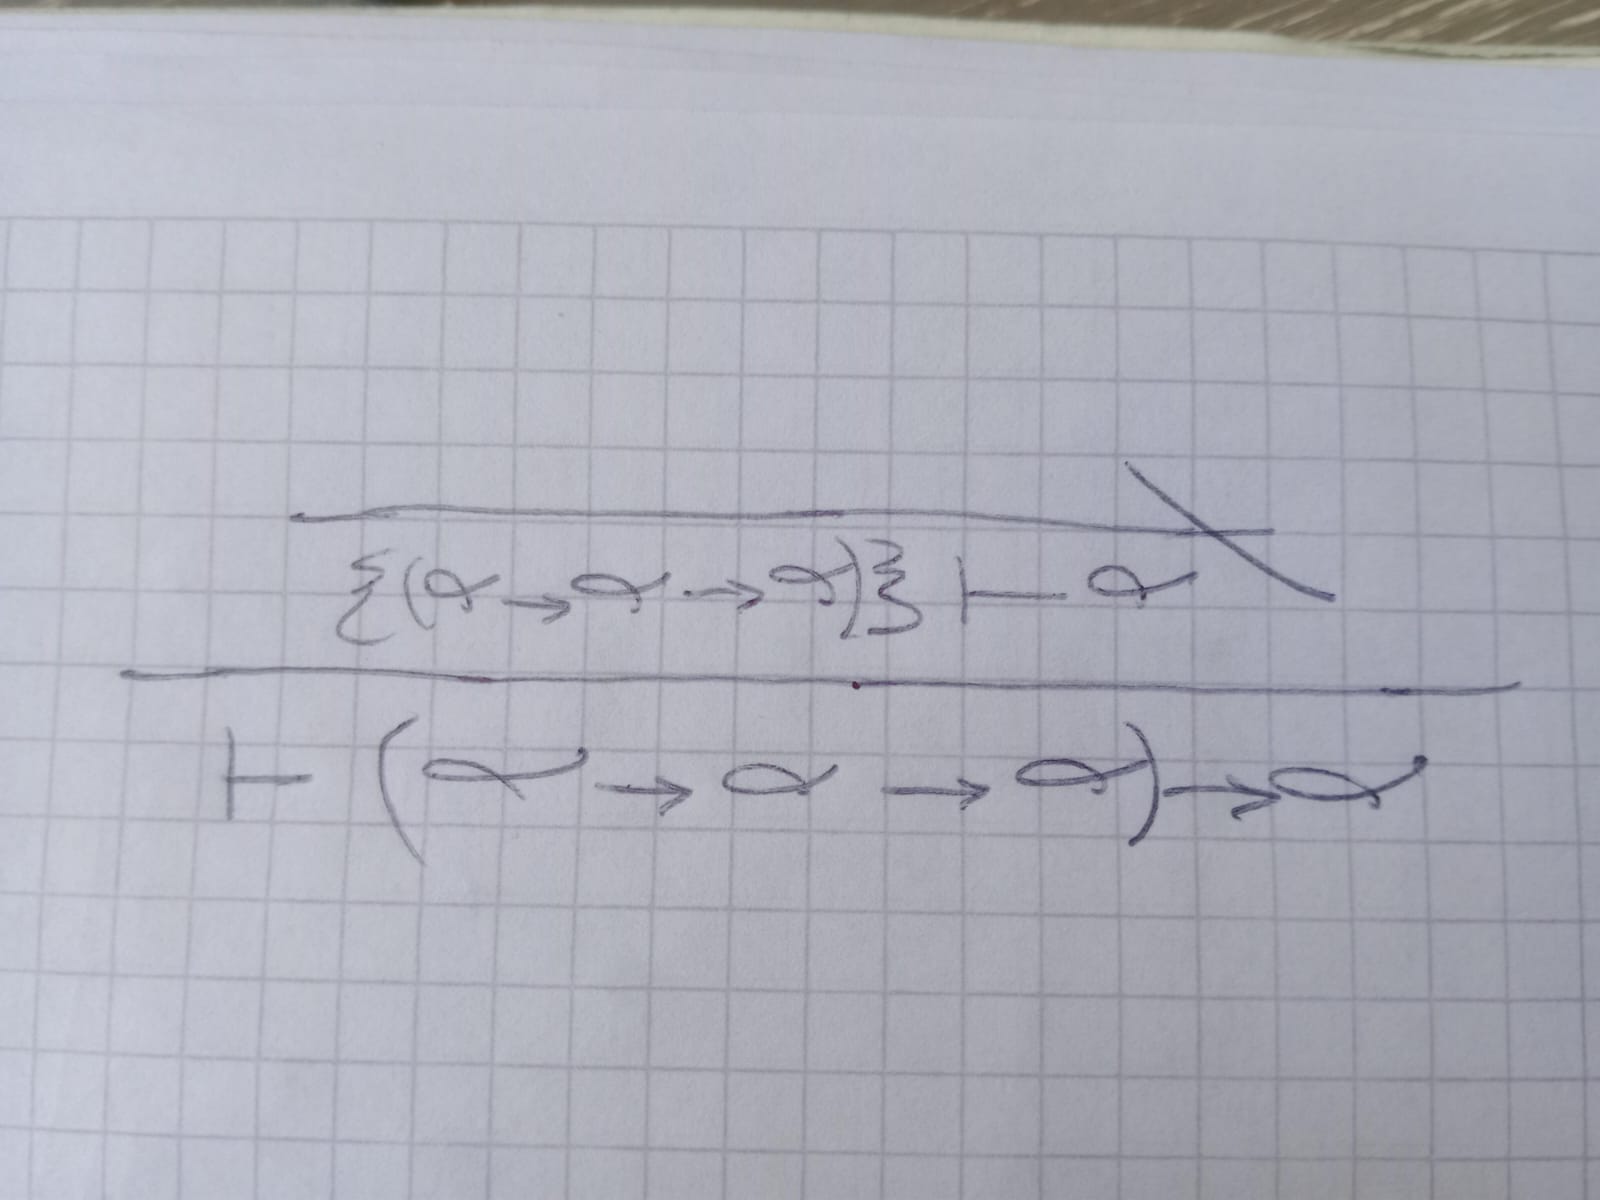 {(α → α → α)} ⊢ α
⊢ (α → α → α) → α